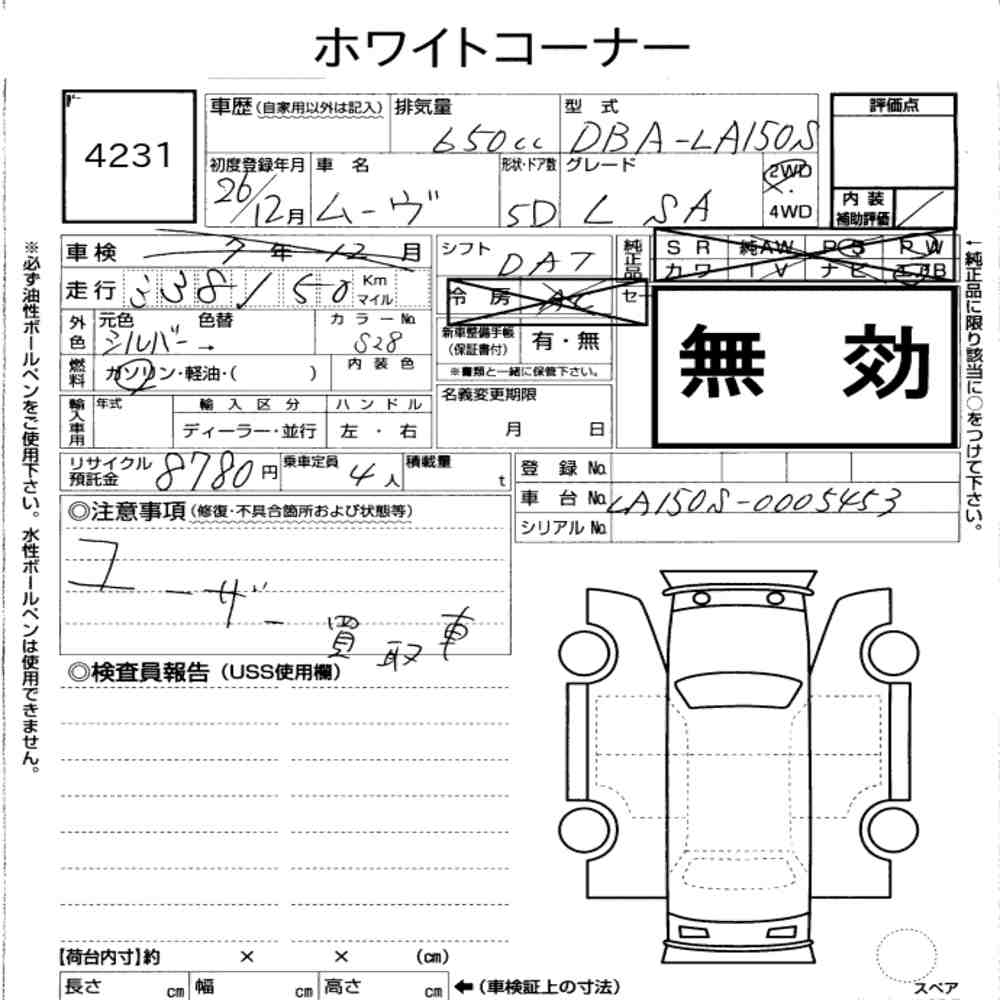 ホワイトコーナー
4231
車歴(自家用以外は記入)
排気量
650cc
型 式
DBA-LA150S
評価点
初度登録年月
26/12月
車 名
ムーヴ
形状・ドア数
5D
グレード
L SA
2WD
4WD
内 装
補助評価
車検
7年12月
シフト
DAT
純正品
SR
純AW
PS
PW
カワ
TV
ナビ
走行
Km
マイル
冷 房
AC
外色
元色
色替
シルバー→
カラーNo.
S28
内 装 色
新車整備手帳
(保証書付)
有・無
※書類と一緒に保管下さい。
無 効
燃料
ガソリン・軽油・( )
名義変更期限
月 日
輸入車用
年式
輸 入 区 分
ディーラー・並行
ハ ン ド ル
左 ・ 右
リサイクル
預託金
8780円
乗車定員
4人
積載量
t
登 録 No.
車 台 No.
LA150S-0005453
シリアル No.
◎注意事項(修復・不具合箇所および状態等)
ユーザー買取車
◎検査員報告(USS使用欄)
【荷台内寸】約 × × (cm)
長さ cm
幅 cm
高さ cm
←(車検証上の寸法)
スペア
※必ず油性ボールペンをご使用下さい。水性ボールペンは使用できません。
←純正品に限り該当に○をつけて下さい。